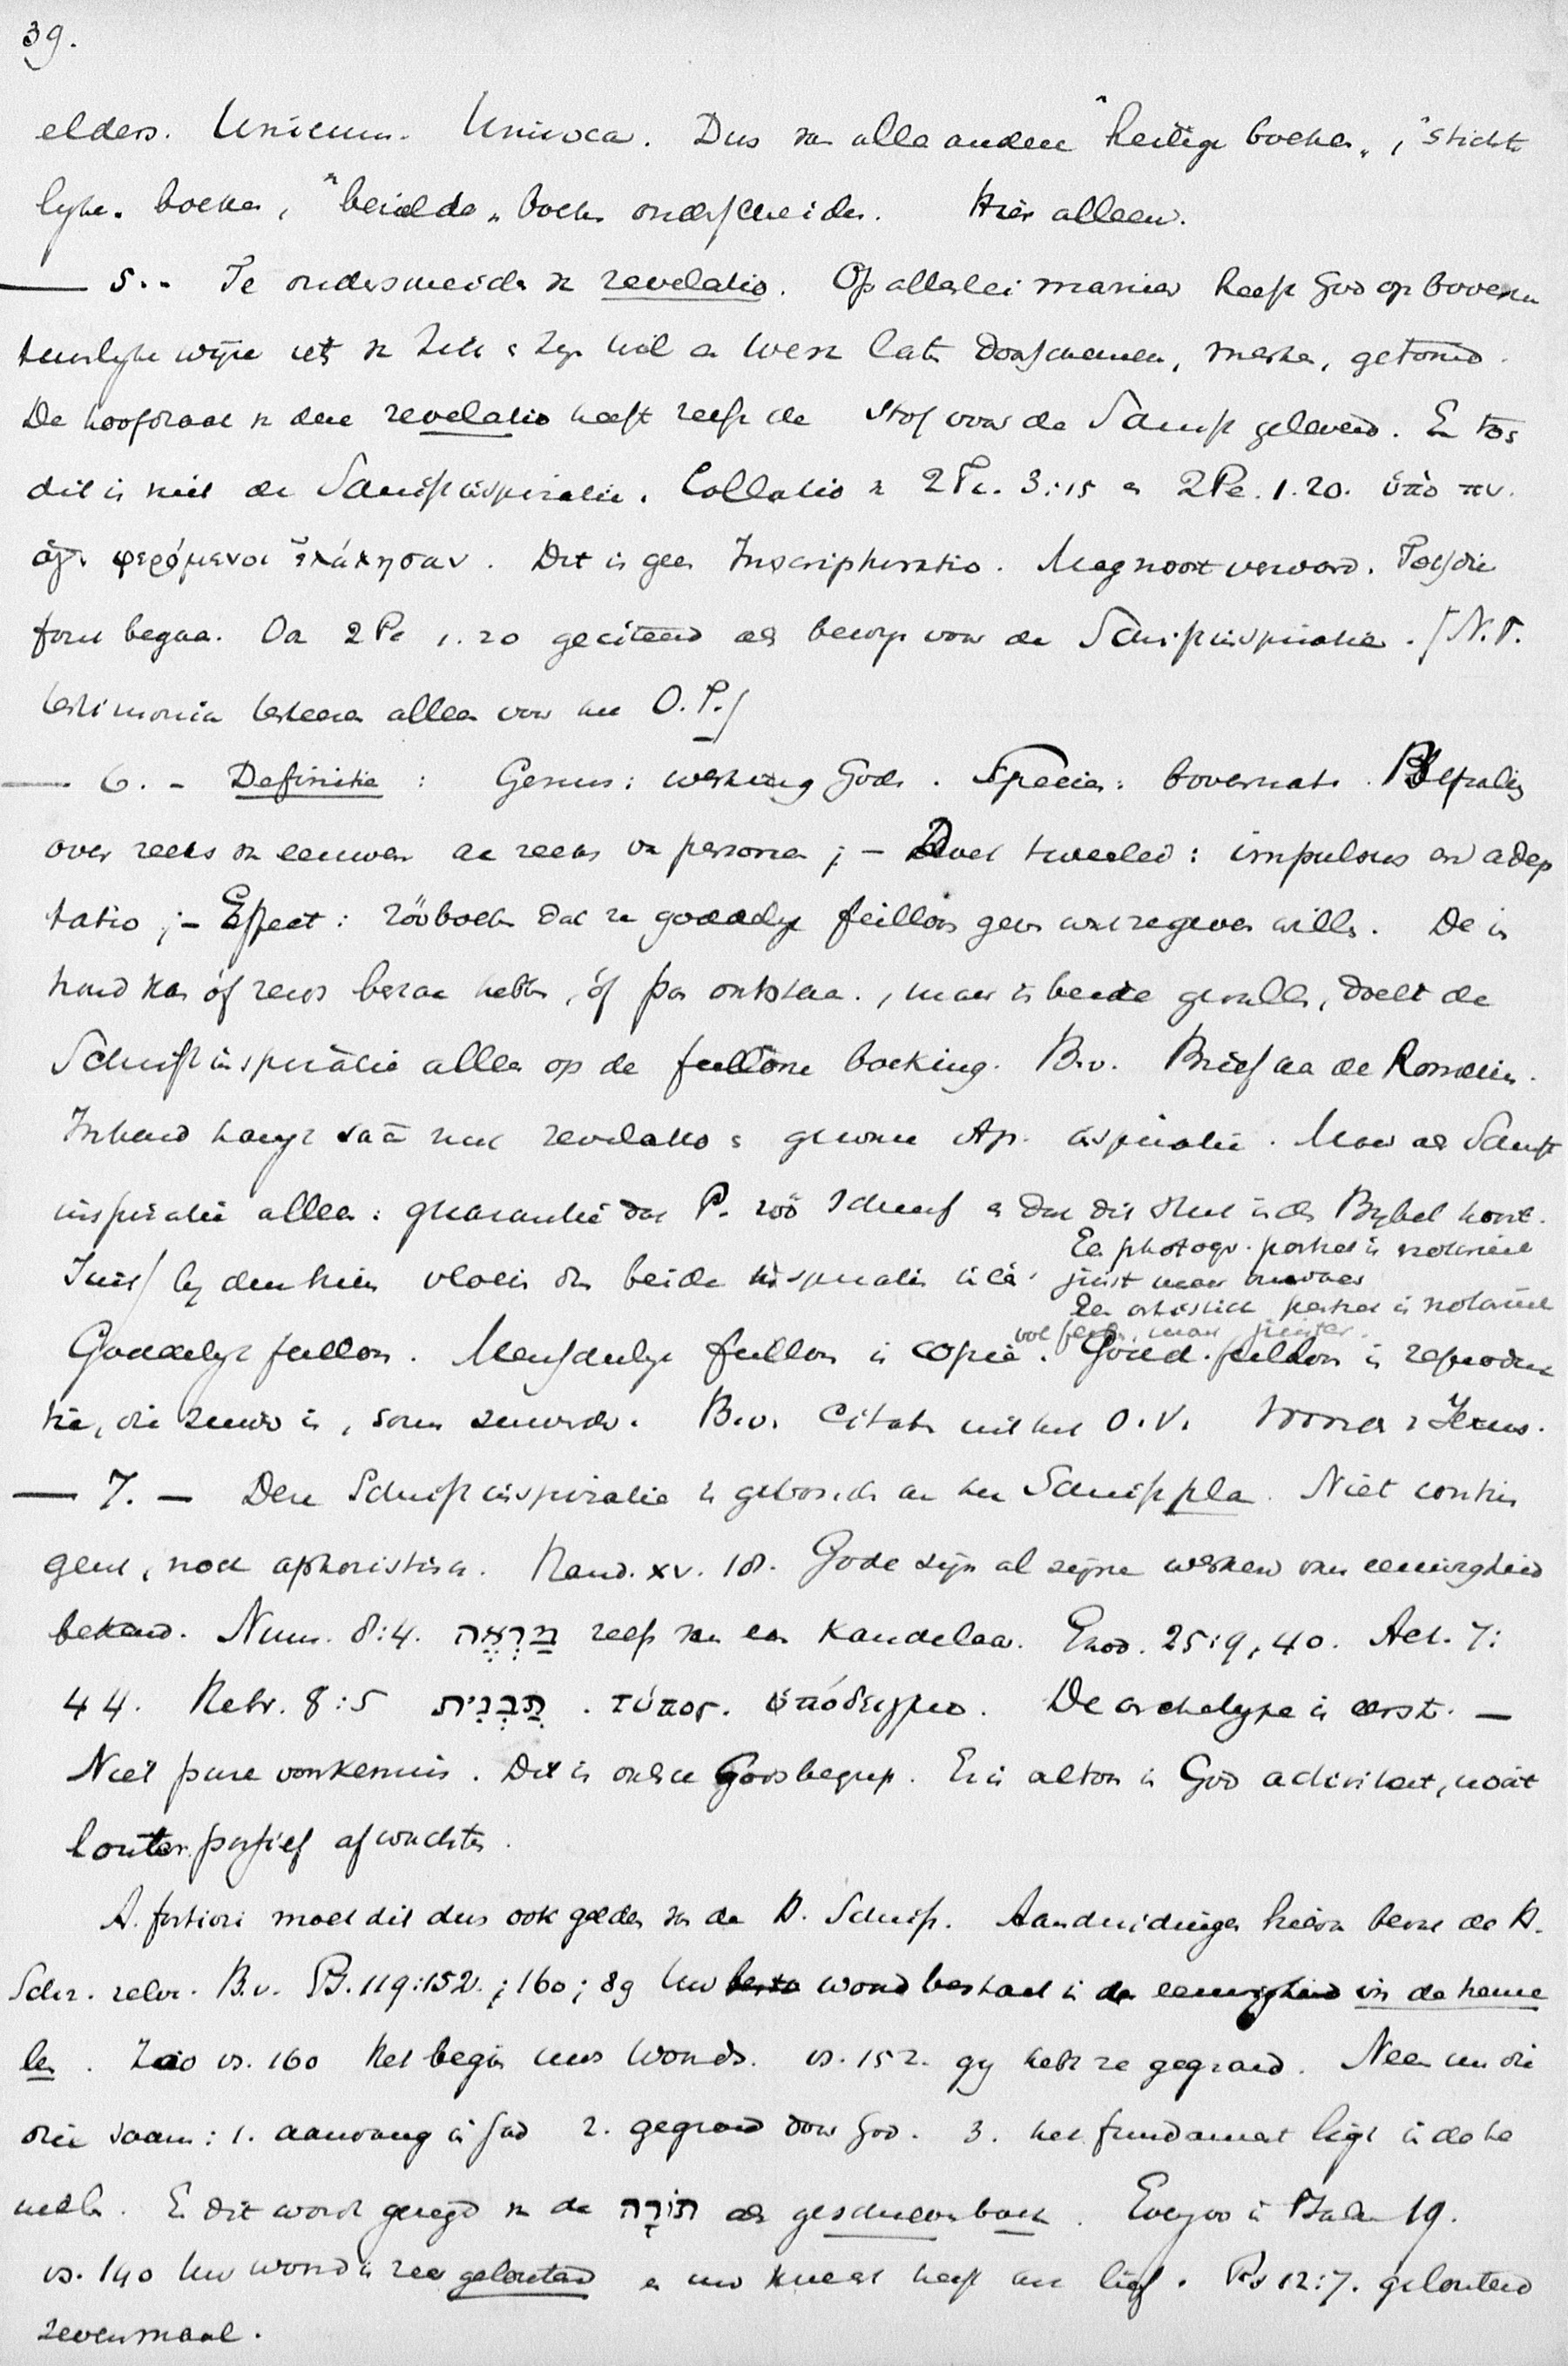 39.
elders. Unicum. Univoca. Dus van alle andere "heilige boeken", "sticht
lyke" boeken, "bezielde" boeken onderscheiden. Hier alleen.
— 5.- Te onderscheiden v. revelatio. Op allerlei manier heeft God op bovenna
tuurlyke wijze iets v. Zich & Zijn wil en werk laten doorschemeren, merken, getoond.
De hoofdzaak v. deze revelatio heeft zelfs de stof voor de Schrift geleverd. En tog
dit is niet de Schriftinspiratie. Collatio v. 2 Ti. 3:15 en 2 Pe. 1.20. ὑπὸ πν.
ἁγ. φερόμενοι ἐλάλησαν. Dit is geen Inscripturatio. Mag nooit verward. Toch die
fout begaan. Ook 2 Pe 1.20 geciteerd als bewijs voor de Schriftinspiratie. [N.T.
testimonia bestaan alleen voor het O.T.]
— 6. - Definitie : Genus: werking Gods. Species: bovennat.
over reeks van eeuwen en reeks van personen ; - Doel tweeled: impulsus en adep
tatio ; - Effect: zóó boek dat ze goddelyk feilloos geven wat ze geven willen. De in
houd kan óf reeds bestaan hebben, óf pas ontstaan, maar in beide gevallen, doelt de
Schriftinspiratie alleen op de feillooze boeking. B.v. Brief aan de Romeinen.
Inhoud hangt saâm met revelatio & gewone Ap. inspiratie. Maar de Schrift
inspiratie alleen: guarantie dat P. zóó schreef & dat dit stuk in den Bybel komt.
Een photogr. portret is notarieel
Juist by den hier vloeien die beide inspiraties inéén.
juist maar onwaar
Een artistiek portret is notarieel
vol fouten, maar juister.
Goddelyk feilloos. Menschelyk feilloos is copie. Godd. feilloos is reproduc
tie, die zuiver is, soms zuiverder. B.v. Citaten uit het O.V. Woorden v. Jezus.
— 7. — Deze Schriftinspiratie is gebonden aan het Schriftplan. Niet contin
gent, noch aphoristisch. Hand. XV. 18. Gode zijn al zijne werken van eeuwigheid
bekend. Num. 8:4. מַרְאֶה zelfs van een Kandelaar. Exod. 25:9, 40. Act. 7:
44. Hebr. 8:5 תַּבְנִית . τύπος. ὑπόδειγμα. De archetype is eerst. —
Niet pure voorkennis. Dit is onze Godsbegrip. Er is altoos in God activiteit, nooit
louter passief afwachten.
A. fortiori moet dit dus ook gelden van de H. Schrift. Aanduidingen hiervan bevat de H.
Schr. zelve. B.v. Ps. 119:152. ; 160 ; 89 Uw woord bestaat in de eeuwigheid in de heme
len. Zoo vs. 160 Het begin uws Woords. vs. 152. gy hebt ze gegrond. Neem nu die
drie saam: 1. aanvang in God 2. gegrond door God. 3. het fundament ligt in de he
melen. En dit wordt gezegd v. de תּוֹרָה als geschreven boek. Evenzoo in Psalm 19.
vs. 140 Uw woord is zeer gelouterd en uw knecht heeft het lief. Ps 12:7. gelouterd
zevenmaal.